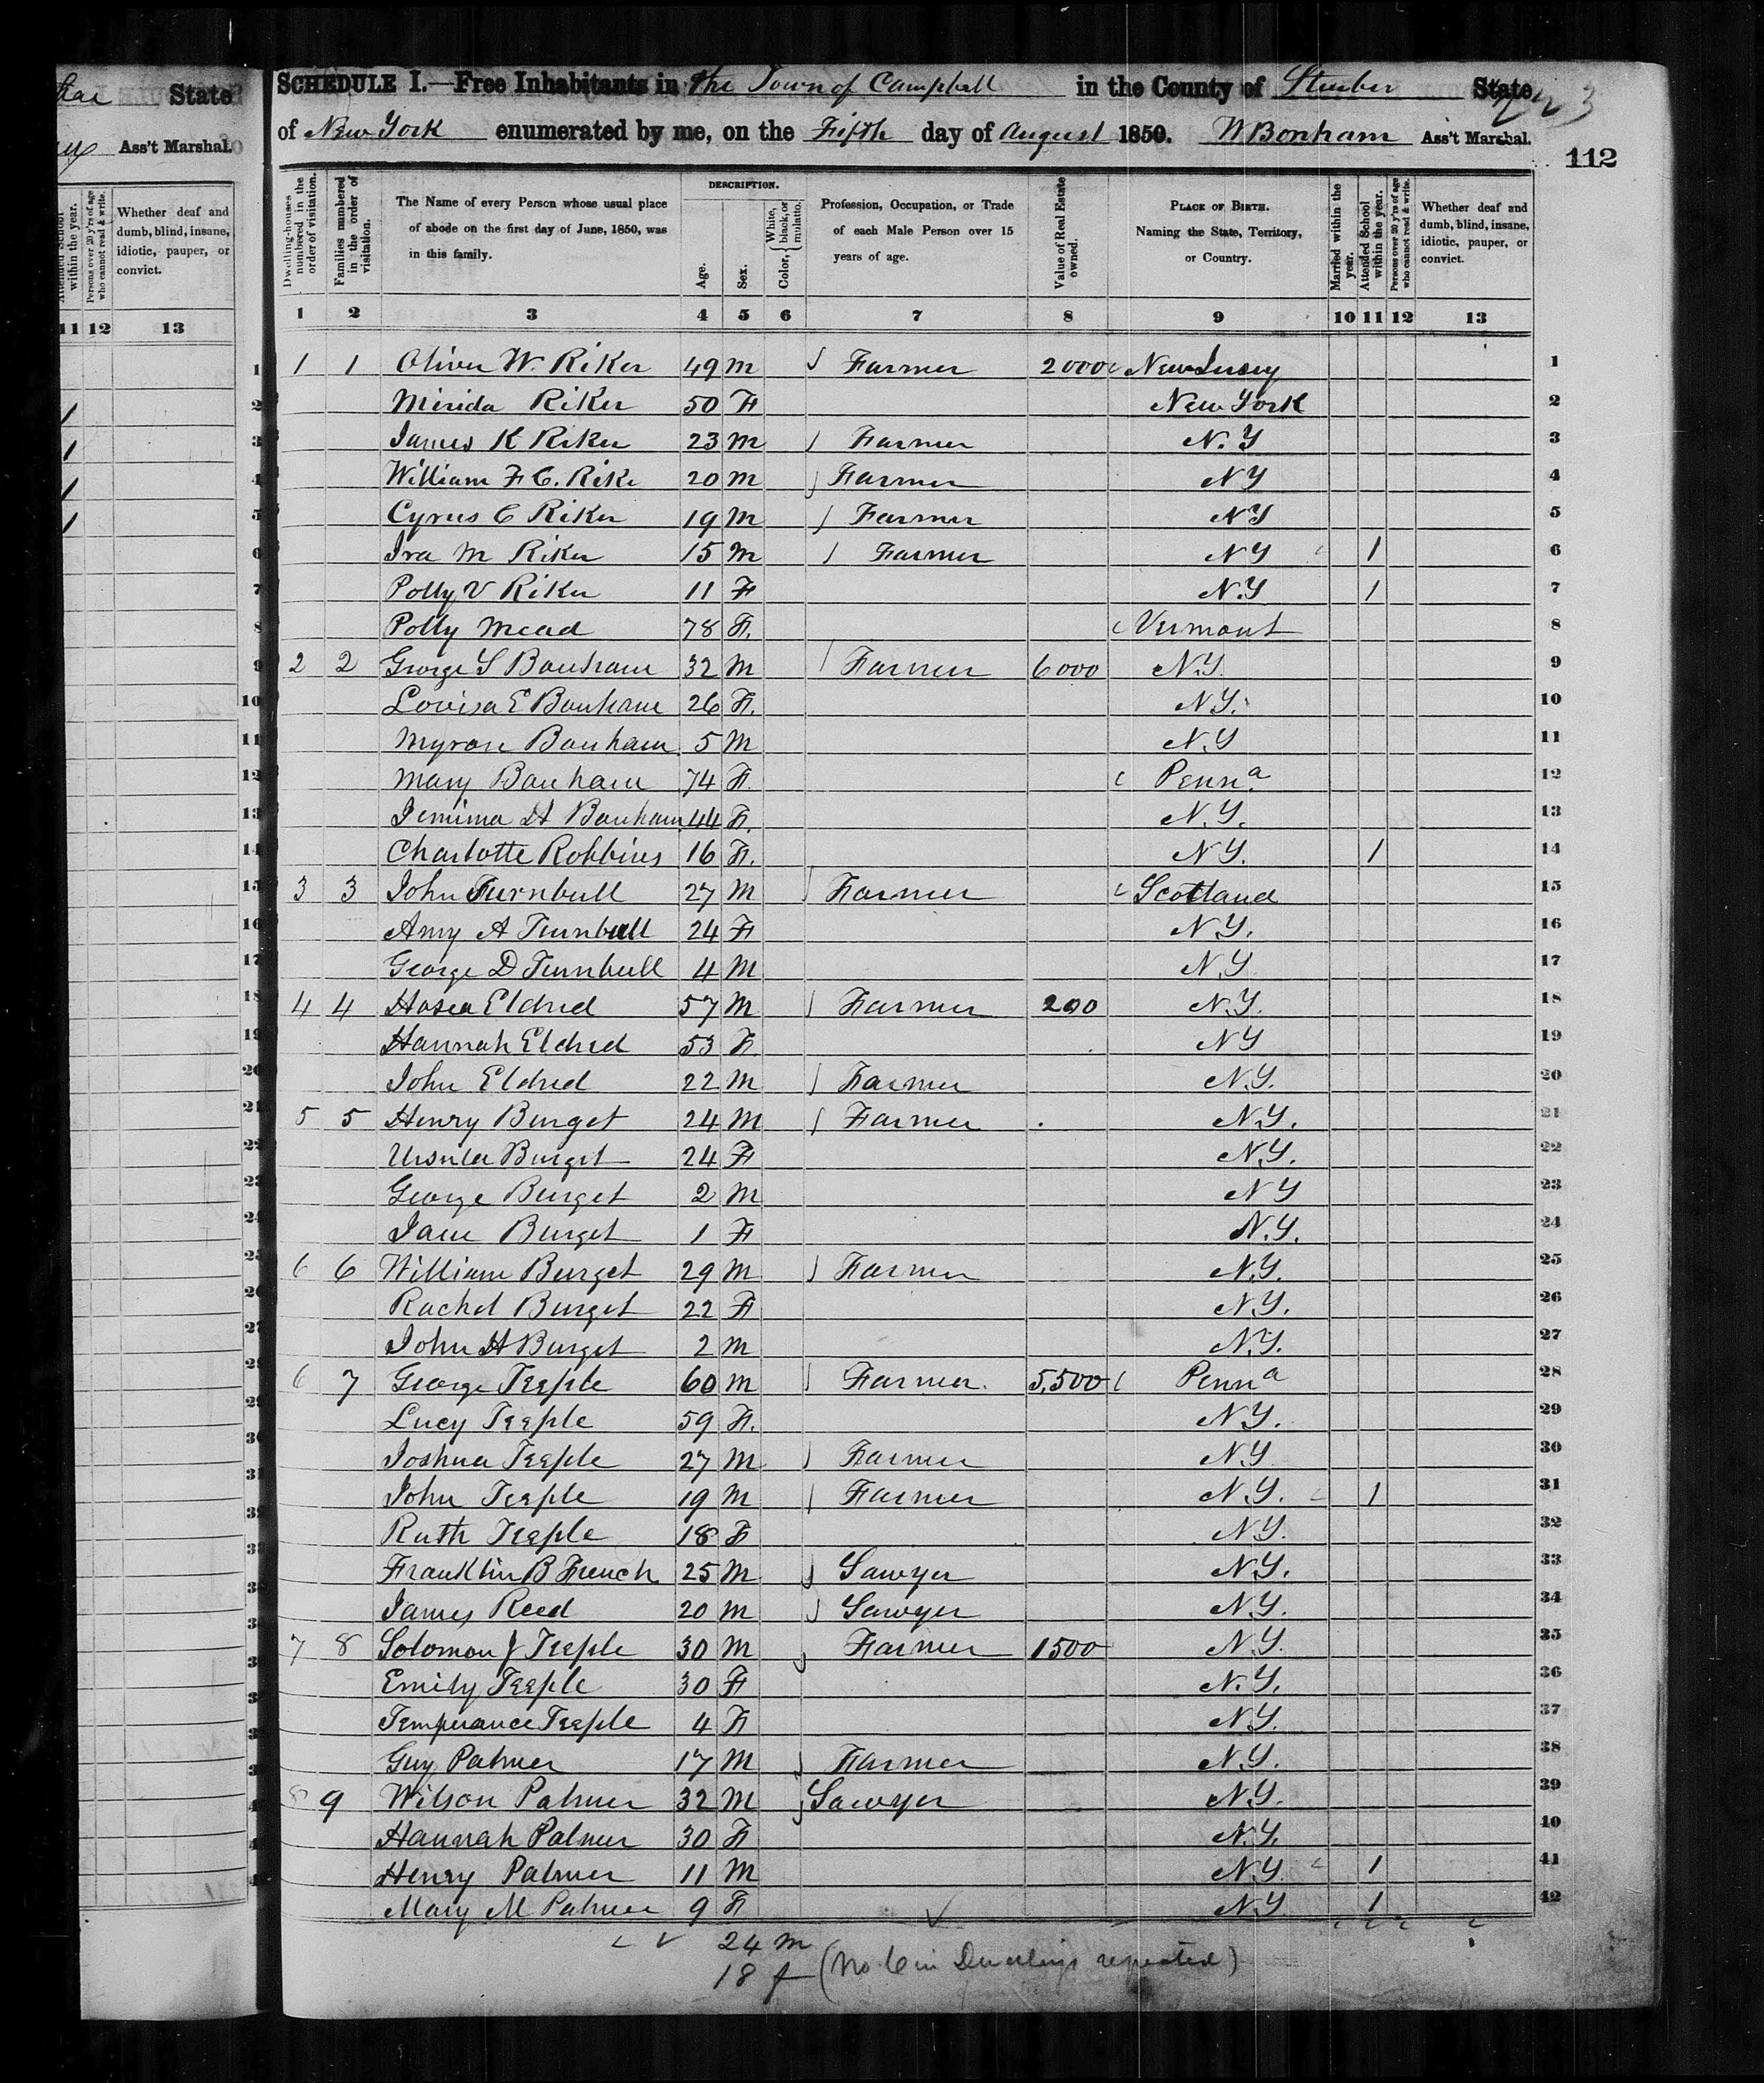 State
Ass't Marshal.
Attended School within the year.
Persons over 20 y'rs of age who cannot read & write.
Whether deaf and dumb, blind, insane, idiotic, pauper, or convict.
11 12 13
SCHEDULE I.—Free Inhabitants in the Town of Campbell in the County of Steuben State
of New York enumerated by me, on the Fifth day of August 1850. W Bonham Ass't Marshal.
112
Dwelling-houses numbered in the order of visitation.
Families numbered in the order of visitation.
The Name of every Person whose usual place of abode on the first day of June, 1850, was in this family.
DESCRIPTION.
Age.
Sex.
Color, { White, black, or mulatto.
Profession, Occupation, or Trade of each Male Person over 15 years of age.
Value of Real Estate owned.
PLACE OF BIRTH. Naming the State, Territory, or Country.
Married within the year.
Attended School within the year.
Persons over 20 y'rs of age who cannot read & write.
Whether deaf and dumb, blind, insane, idiotic, pauper, or convict.
1 2 3 4 5 6 7 8 9 10 11 12 13
1 1 1 Oliver W. Riker 49 M Farmer 2000 New Jersey 1
2 Mirida Riker 50 F New York 2
3 James K Riker 23 M Farmer N.Y 3
4 William F C. Rike 20 M Farmer NY 4
5 Cyrus C Riker 19 M Farmer NY 5
6 Ira M Riker 15 M Farmer NY 1 6
7 Polly V Riker 11 F N.Y 1 7
8 Polly Mead 78 F. Vermont 8
9 2 2 George S Bonham 32 M Farmer 6000 N.Y. 9
10 Louisa E Bonham 26 F. NY. 10
11 Myron Bonham 5 M N.Y 11
12 Mary Bonham 74 F. Penna. 12
13 Jemima H Bonham 44 F. N.Y. 13
14 Charlotte Robbins 16 F. NY. 1 14
15 3 3 John Turnbull 27 M Farmer Scotland 15
16 Amy A Turnbull 24 F N.Y. 16
17 George D Turnbull 4 M N.Y 17
18 4 4 Hosea Eldred 57 M Farmer 200 N.Y. 18
19 Hannah Eldred 53 F. NY 19
20 John Eldred 22 M Farmer N.Y. 20
21 5 5 Henry Burget 24 M Farmer N.Y. 21
22 Ursula Burget 24 F N.Y. 22
23 George Burget 2 M NY 23
24 Jane Burget 1 F N.Y. 24
25 6 6 William Burget 29 M Farmer N.Y. 25
26 Rachel Burget 22 F N.Y. 26
27 John H Burget 2 M N.Y. 27
6 7 George Teeple 60 M Farmer. 5,500 Penna 28
Lucy Teeple 59 F. N.Y. 29
Joshua Teeple 27 M Farmer N.Y 30
John Teeple 19 M Farmer N.Y. 1 31
Ruth Teeple 18 F N.Y. 32
Franklin B French 25 M Sawyer N.Y. 33
James Reed 20 M Sawyer N.Y. 34
7 8 Solomon J Teeple 30 M Farmer 1500 N.Y. 35
Emily Teeple 30 F N.Y. 36
Temperance Teeple 4 F N.Y. 37
Guy Palmer 17 M Farmer N.Y. 38
8 9 Wilson Palmer 32 M Sawyer N.Y. 39
Hannah Palmer 30 F N.Y. 40
Henry Palmer 11 M N.Y. 1 41
Mary M Palmer 9 F N.Y. 1 42
24 m
18 f (No 6 in Dwellings repeated)